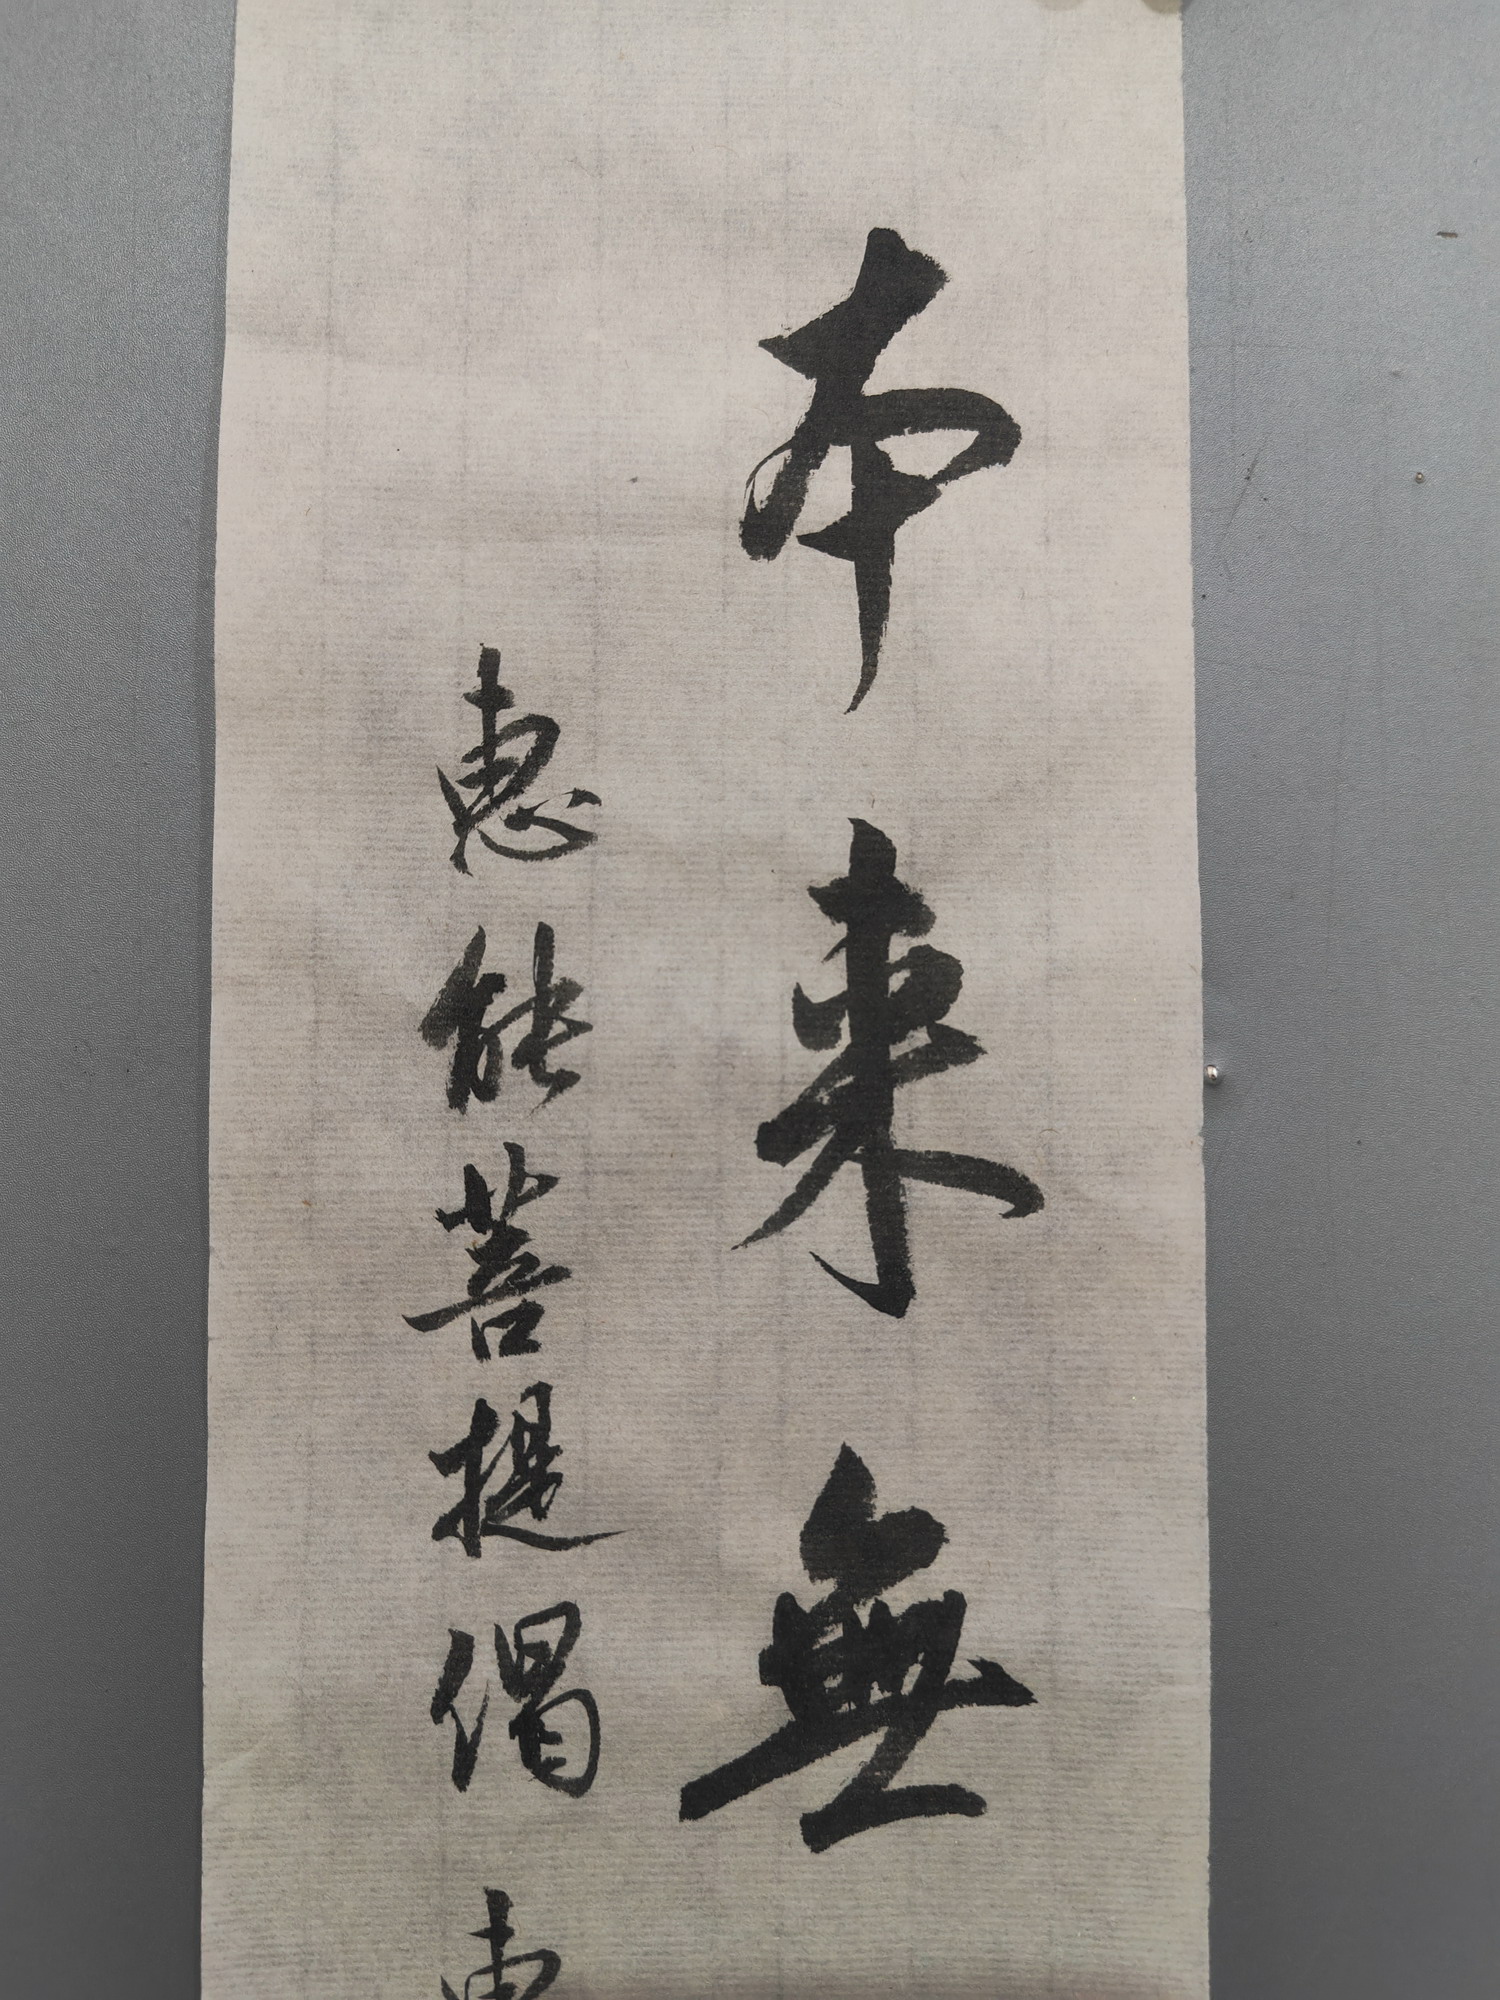 本来無
惠能菩提偈